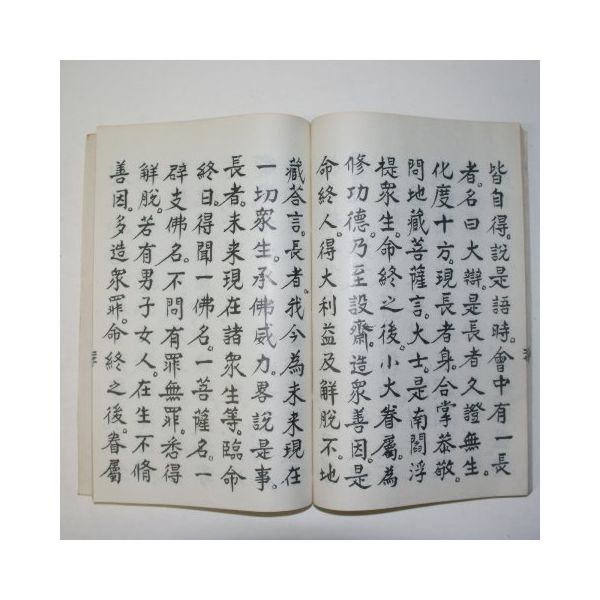 皆自得。說是語時。會中有一長
者。名曰大辯。是長者久證無生。
化度十方。現長者身。合掌恭敬。
問地藏菩薩言。大士。是南閻浮
提衆生。命終之後。小大眷屬。為
修功德。乃至設齋。造衆善因。是
命終人。得大利益及解脫不。地
藏荅言。長者。我今為未来現在
一切衆生。承佛威力。畧說是事。
長者。未来現在諸衆生等。臨命
終日。得聞一佛名。一菩薩名。一
辟支佛名。不問有罪無罪。悉得
解脫。若有男子女人。在生不脩
善因。多造衆罪。命終之後。眷屬